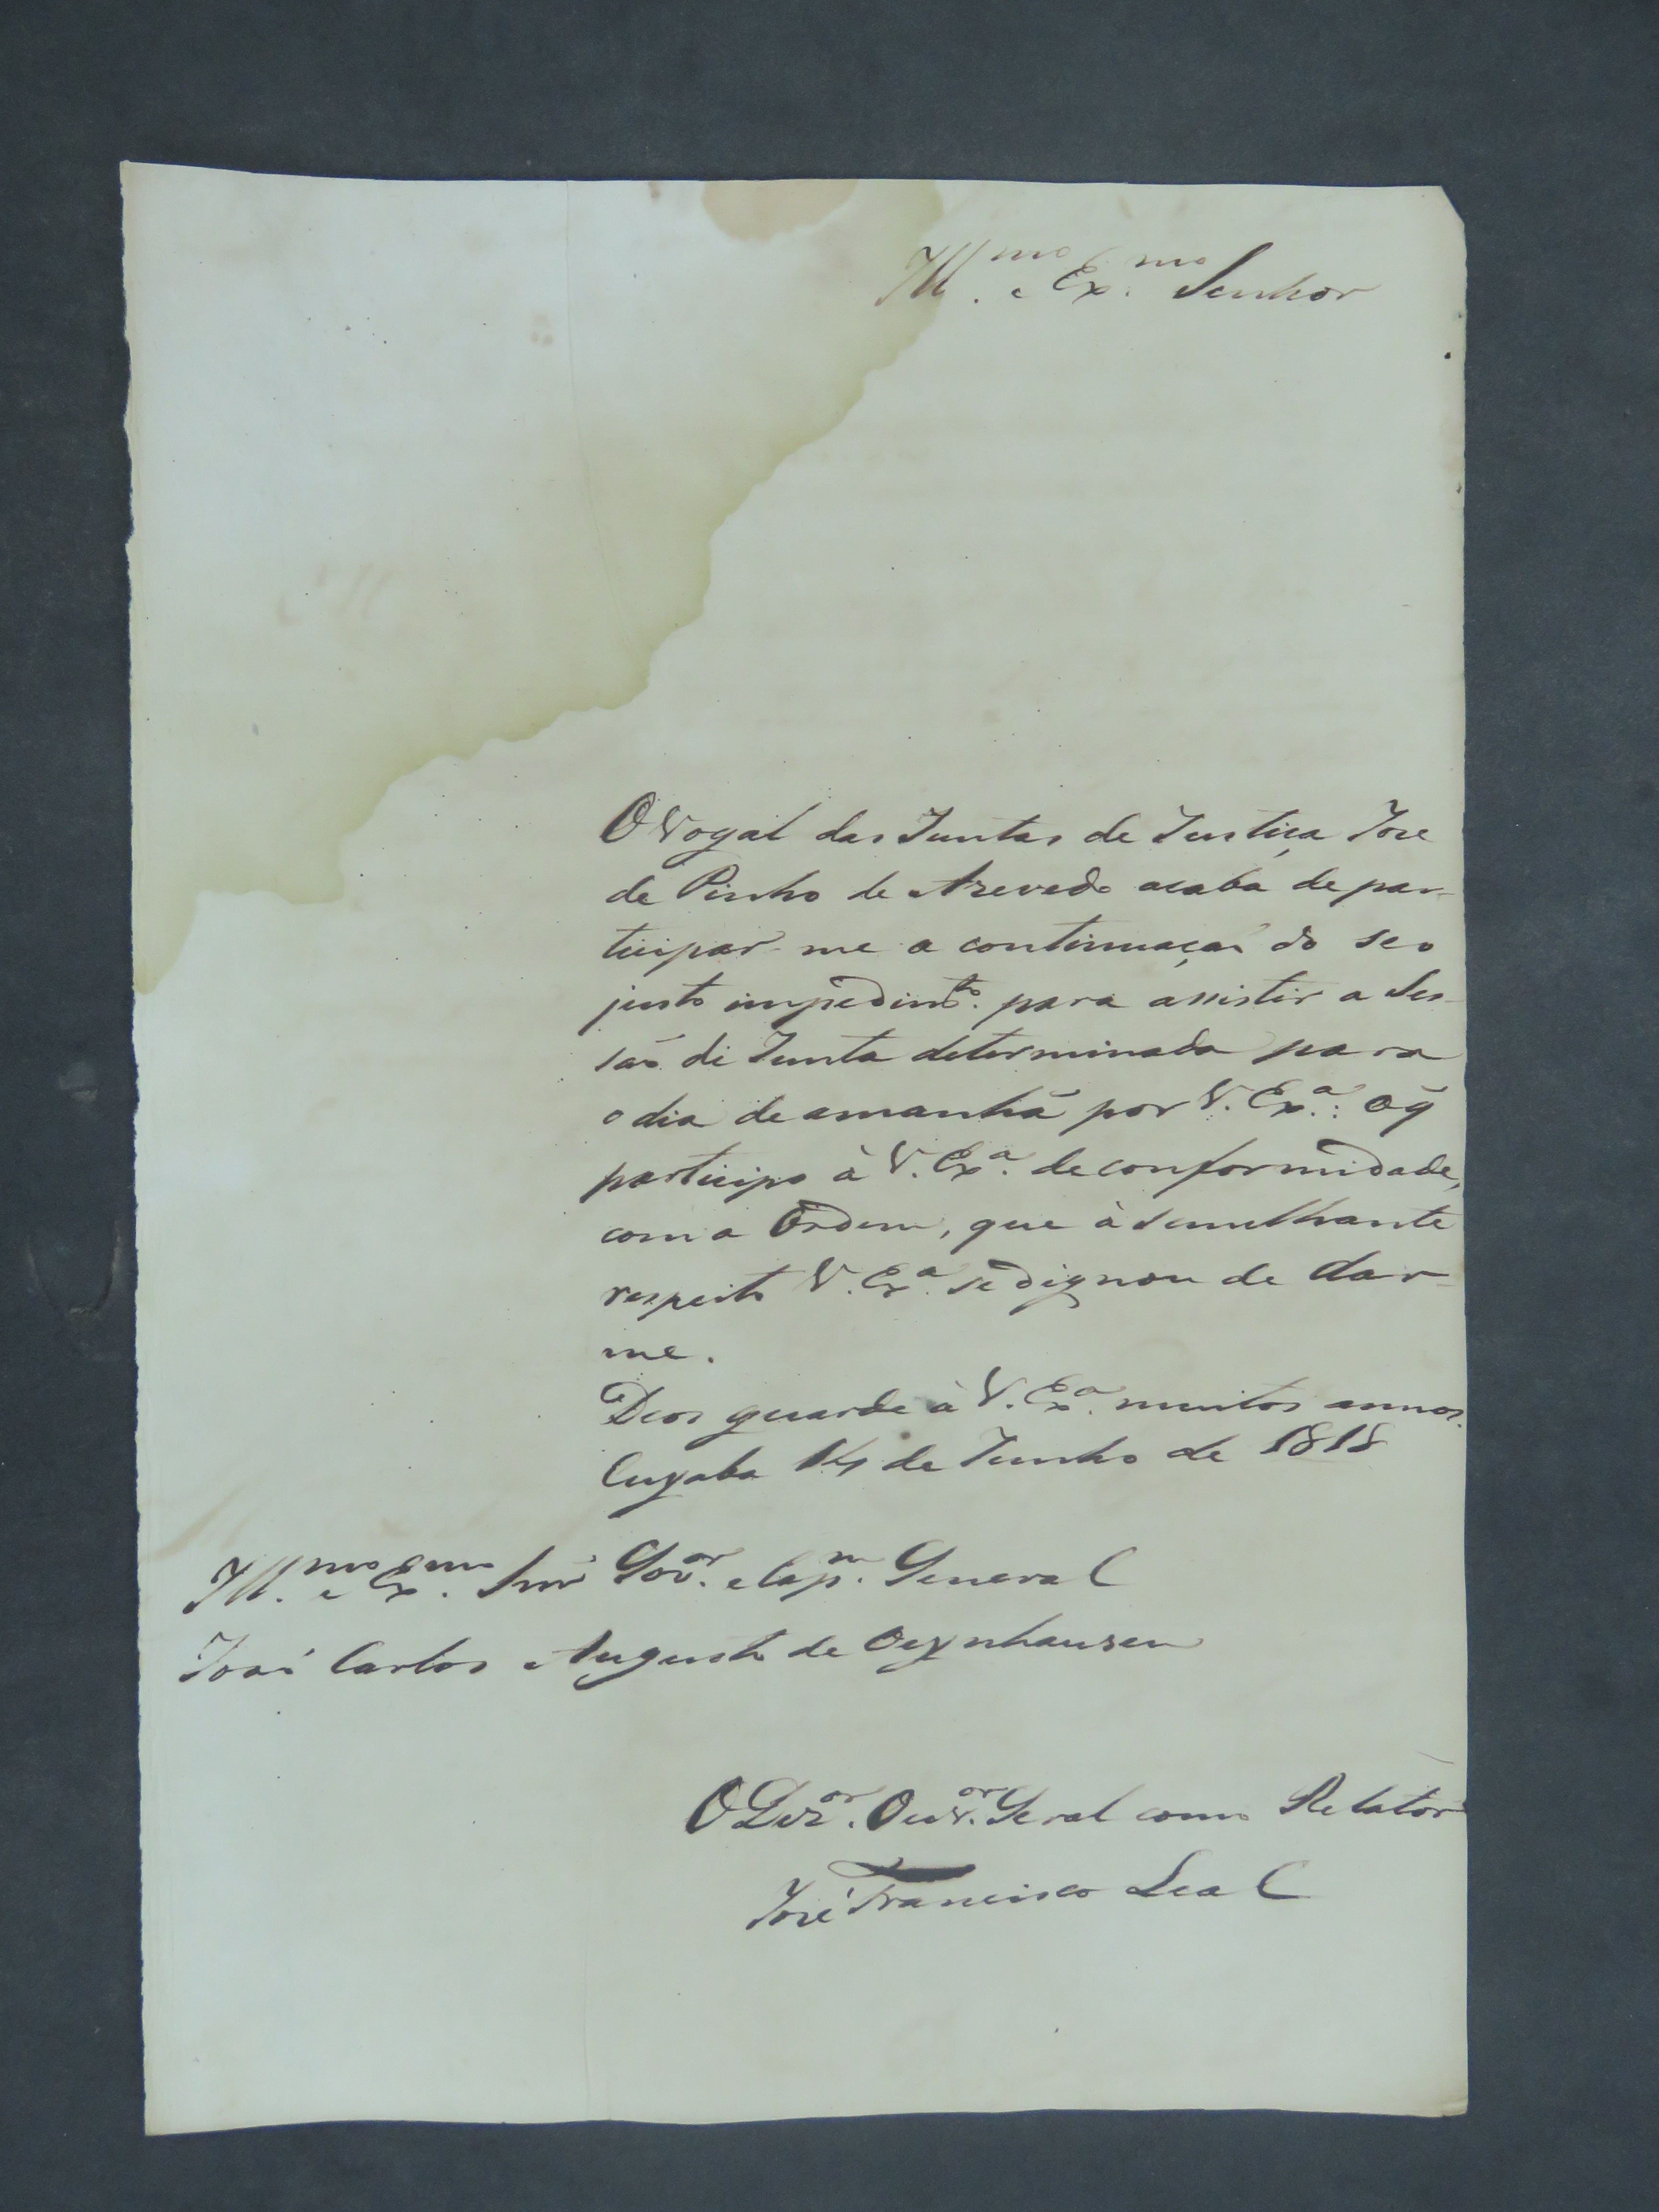 Ill.mo e Ex.mo Senhor
O Vogal das Juntas de Justiça Joze
de Pinho de Azevedo acaba de par-
ticipar-me a continuaçaõ do seo
justo impedim.to para assistir a Ses-
saõ de Junta determinada para
o dia de amanhã por V. Ex.a: o q̃
participo à V. Ex.a de conformidade,
com a Ordem, que à semelhante
respeito V. Ex.a se dignou de dar-
me.
Deos guarde à V. Ex.a muitos annos.
Cuyaba 14 de Junho de 1818
Ill.mo e Ex.mo Snr̃ Gov.or e Cap.m General
Joaõ Carlos Augusto de Oeynhausen
O Dez.or Ouv.or Geral como Relator
José Francisco Leal